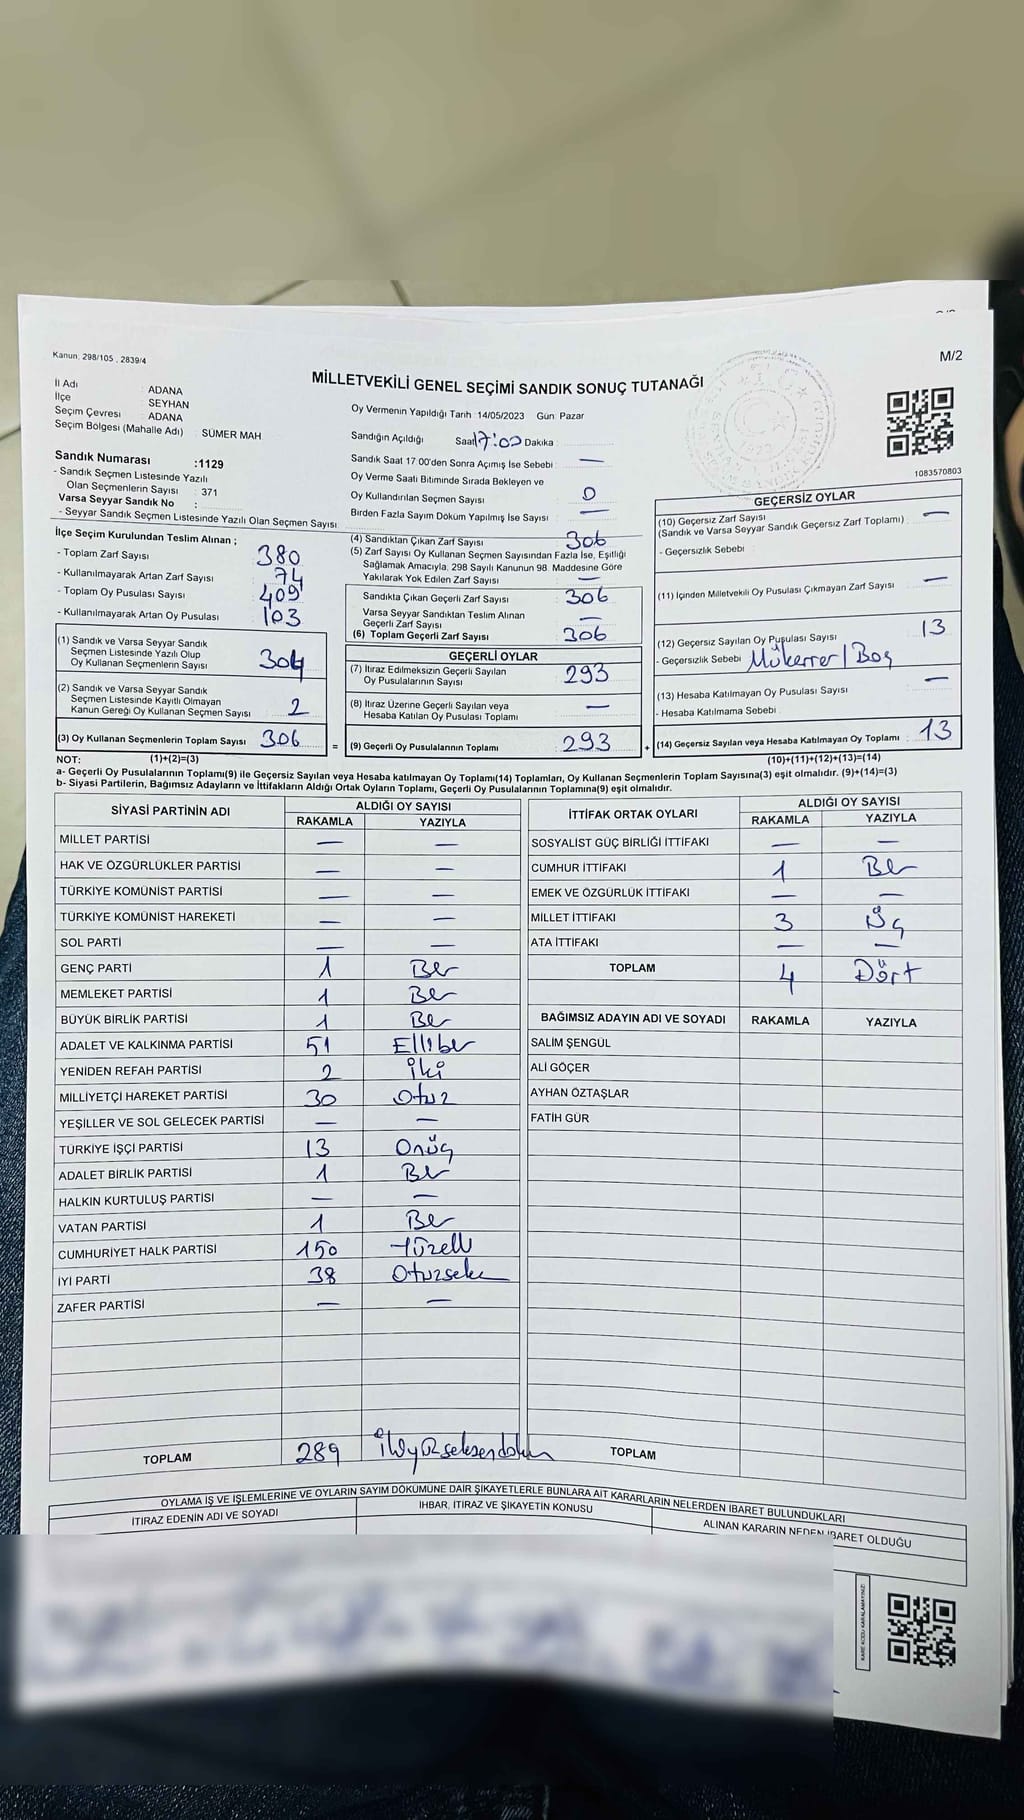 Kanun, 298/105 , 2839/4
M/2
MİLLETVEKİLİ GENEL SEÇİMİ SANDIK SONUÇ TUTANAĞI
İl Adı : ADANA
İlçe : SEYHAN
Seçim Çevresi : ADANA
Seçim Bölgesi (Mahalle Adı) : SÜMER MAH
Sandık Numarası :1129
- Sandık Seçmen Listesinde Yazılı
Olan Seçmenlerin Sayısı : 371
Varsa Seyyar Sandık No :
- Seyyar Sandık Seçmen Listesinde Yazılı Olan Seçmen Sayısı :
İlçe Seçim Kurulundan Teslim Alınan ;
- Toplam Zarf Sayısı : 380
- Kullanılmayarak Artan Zarf Sayısı : 74
- Toplam Oy Pusulası Sayısı : 409
- Kullanılmayarak Artan Oy Pusulası : 103
(1) Sandık ve Varsa Seyyar Sandık
Seçmen Listesinde Yazılı Olup
Oy Kullanan Seçmenlerin Sayısı : 304
(2) Sandık ve Varsa Seyyar Sandık
Seçmen Listesinde Kayıtlı Olmayan
Kanun Gereği Oy Kullanan Seçmen Sayısı : 2
(3) Oy Kullanan Seçmenlerin Toplam Sayısı : 306
Oy Vermenin Yapıldığı Tarih : 14/05/2023 Gün: Pazar
Sandığın Açıldığı Saat 17:00 Dakika :
Sandık Saat 17:00'den Sonra Açımış İse Sebebi : —
Oy Verme Saati Bitiminde Sırada Bekleyen ve
Oy Kullandırılan Seçmen Sayısı : 0
Birden Fazla Sayım Döküm Yapılmış İse Sayısı : —
(4) Sandıktan Çıkan Zarf Sayısı : 306
(5) Zarf Sayısı Oy Kullanan Seçmen Sayısından Fazla İse, Eşitliği
Sağlamak Amacıyla, 298 Sayılı Kanunun 98. Maddesine Göre
Yakılarak Yok Edilen Zarf Sayısı : —
Sandıkta Çıkan Geçerli Zarf Sayısı : 306
Varsa Seyyar Sandıktan Teslim Alınan
Geçerli Zarf Sayısı : —
(6) Toplam Geçerli Zarf Sayısı : 306
GEÇERLİ OYLAR
(7) İtiraz Edilmeksizin Geçerli Sayılan
Oy Pusulalarının Sayısı : 293
(8) İtiraz Üzerine Geçerli Sayılan veya
Hesaba Katılan Oy Pusulası Toplamı : —
= (9) Geçerli Oy Pusulalarının Toplamı : 293
1083570803
GEÇERSİZ OYLAR
(10) Geçersiz Zarf Sayısı : —
(Sandık ve Varsa Seyyar Sandık Geçersiz Zarf Toplamı)
- Geçersizlik Sebebi :
(11) İçinden Milletvekili Oy Pusulası Çıkmayan Zarf Sayısı : —
(12) Geçersiz Sayılan Oy Pusulası Sayısı : 13
- Geçersizlik Sebebi : Mükerrer/Boş
(13) Hesaba Katılmayan Oy Pusulası Sayısı : —
- Hesaba Katılmama Sebebi :
+ (14) Geçersiz Sayılan veya Hesaba Katılmayan Oy Toplamı : 13
NOT: (1)+(2)=(3) (10)+(11)+(12)+(13)=(14)
a- Geçerli Oy Pusulalarının Toplamı(9) ile Geçersiz Sayılan veya Hesaba katılmayan Oy Toplamı(14) Toplamları, Oy Kullanan Seçmenlerin Toplam Sayısına(3) eşit olmalıdır. (9)+(14)=(3)
b- Siyasi Partilerin, Bağımsız Adayların ve İttifakların Aldığı Ortak Oyların Toplamı, Geçerli Oy Pusulalarının Toplamına(9) eşit olmalıdır.
SİYASİ PARTİNİN ADI ALDIĞI OY SAYISI
RAKAMLA YAZIYLA
MİLLET PARTİSİ — —
HAK VE ÖZGÜRLÜKLER PARTİSİ — —
TÜRKİYE KOMÜNİST PARTİSİ — —
TÜRKİYE KOMÜNİST HAREKETİ — —
SOL PARTİ — —
GENÇ PARTİ 1 Bir
MEMLEKET PARTİSİ 1 Bir
BÜYÜK BİRLİK PARTİSİ 1 Bir
ADALET VE KALKINMA PARTİSİ 51 Ellibir
YENİDEN REFAH PARTİSİ 2 İki
MİLLİYETÇİ HAREKET PARTİSİ 30 Otuz
YEŞİLLER VE SOL GELECEK PARTİSİ — —
TÜRKİYE İŞÇİ PARTİSİ 13 Onüç
ADALET BİRLİK PARTİSİ 1 Bir
HALKIN KURTULUŞ PARTİSİ — —
VATAN PARTİSİ 1 Bir
CUMHURİYET HALK PARTİSİ 150 Yüzelli
İYİ PARTİ 38 Otuzsekiz
ZAFER PARTİSİ — —
TOPLAM 289 İkiyüzseksendokuz
İTTİFAK ORTAK OYLARI ALDIĞI OY SAYISI
RAKAMLA YAZIYLA
SOSYALİST GÜÇ BİRLİĞİ İTTİFAKI — —
CUMHUR İTTİFAKI 1 Bir
EMEK VE ÖZGÜRLÜK İTTİFAKI — —
MİLLET İTTİFAKI 3 Üç
ATA İTTİFAKI — —
TOPLAM 4 Dört
BAĞIMSIZ ADAYIN ADI VE SOYADI RAKAMLA YAZIYLA
SALİM ŞENGÜL
ALİ GÖÇER
AYHAN ÖZTAŞLAR
FATİH GÜR
TOPLAM
OYLAMA İŞ VE İŞLEMLERİNE VE OYLARIN SAYIM DÖKÜMÜNE DAİR ŞİKAYETLERLE BUNLARA AİT KARARLARIN NELERDEN İBARET BULUNDUKLARI
İTİRAZ EDENİN ADI VE SOYADI İHBAR, İTİRAZ VE ŞİKAYETİN KONUSU ALINAN KARARIN NEDEN İBARET OLDUĞU
KARE KODU KARALAMAYINIZ!